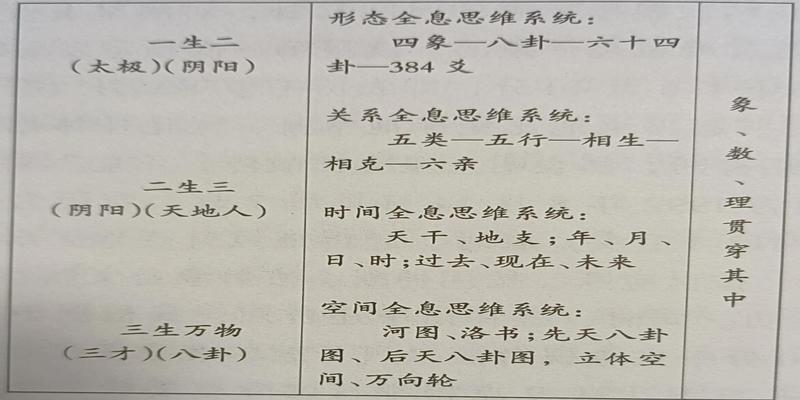 一生二
(太极)(阴阳)
二生三
(阴阳)(天地人)
三生万物
(三才)(八卦)
形态全息思维系统：
四象—八卦—六十四
卦—384爻
关系全息思维系统：
五类—五行—相生—
相克—六亲
时间全息思维系统：
天干、地支；年、月、
日、时；过去、现在、未来
空间全息思维系统：
河图、洛书；先天八卦
图、后天八卦图，立体空
间、万向轮
象、数、理贯穿其中